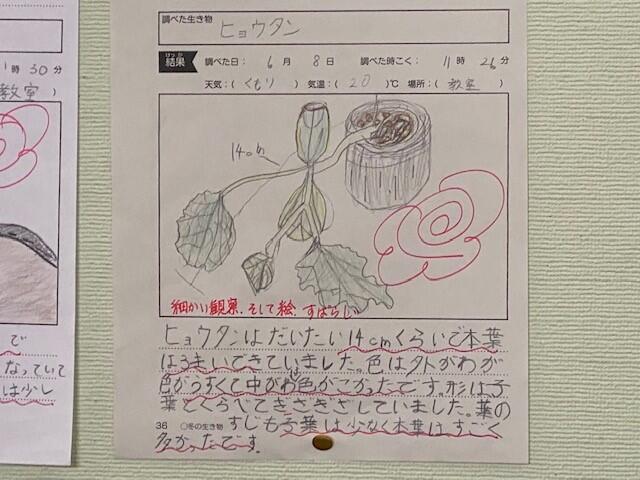 調べた生き物
ヒョウタン
けっか
結果
調べた日： 6月 8日 調べた時こく： 11時 26分
天気：（くもり） 気温：（20）℃ 場所：（教室）
14cm
細かい観察、そして絵、すばらしい
ヒョウタンはだいたい14cmくらいで本葉
は3まいできていました。色は外がわが
色がうすくて中がわは色がこかったです。形は子
葉とくらべてぎざぎざしていました。葉の
すじも子葉は少なく本葉はすごく
多かったです。
36 ○冬の生き物
時 30分
教室）
で
なっていて
は少し